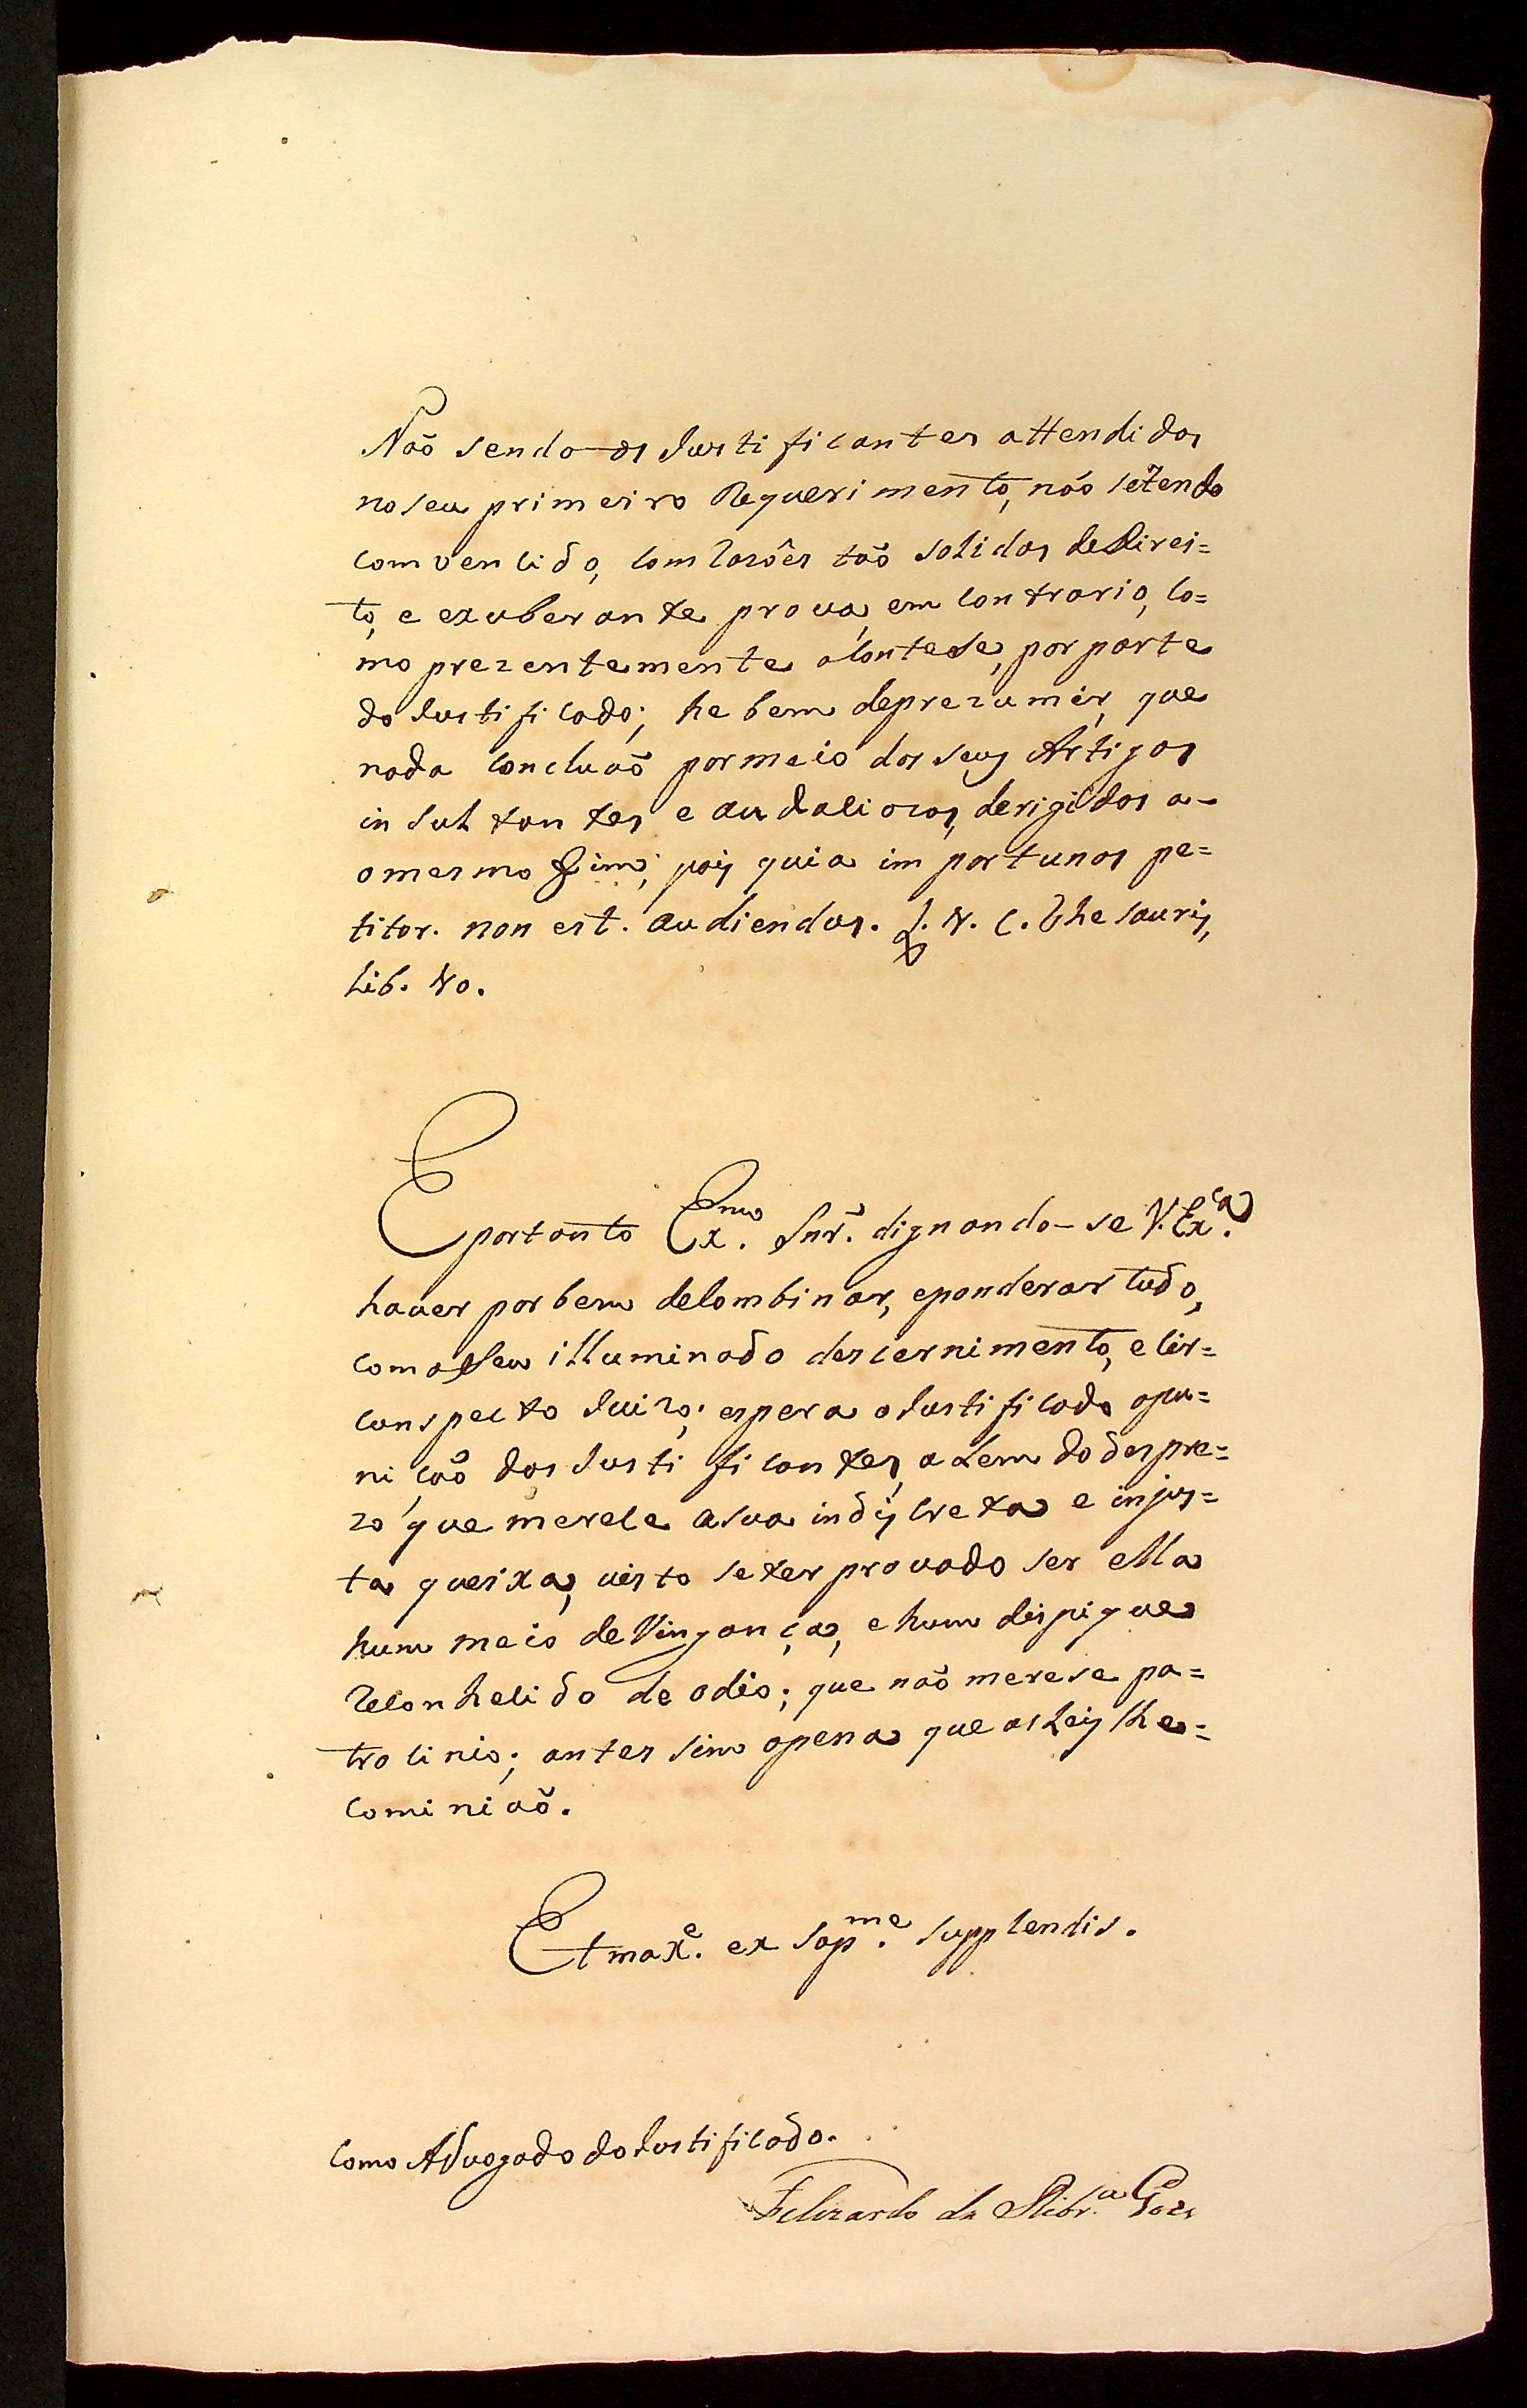 Naõ sendo os Justificantes attendidos
no seu primeiro Requerimento, naõ se tendo
comvencido, com rasoẽs taõ solidas de Direi=
to, e exuberante prova, em contrario, co=
mo prezentemente acontese, por parte
do Justificado; he bem de prezumir, que
nada concluaõ por meio dos seus Artigos
insultantes e audaciozos, derigidos a-
o mesmo fim; pois quia importunos pe=
titor. non est. audiendus. L. 4. C. Thesauris,
Lib. 40.
E portanto Ex.mo Snr. dignando-se V. Ex.ca
haver por bem de combinar, e ponderar tudo,
com o seu illuminado descernimento, e cir=
cunspecto Juizo; espera o Justificado a pu=
niçaõ dos Justificantes, alem do despre=
zo que merece a sua indiscreta e injus=
ta queixa, visto se ter provado ser ella
hum meio de Vingança, e hum dispique
reconhecido de odio; que naõ merese pa=
trocinio; antes sim a pena que as Leis lhe=
cominiaõ.
Et max.e ex sap.me supplendis.
Como Advogado do Justificado.
Felizardo da